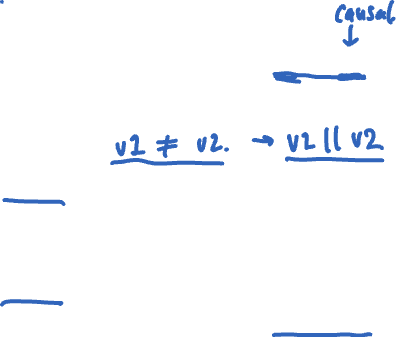 causal
v1 ≠ v2. → v2 || v2